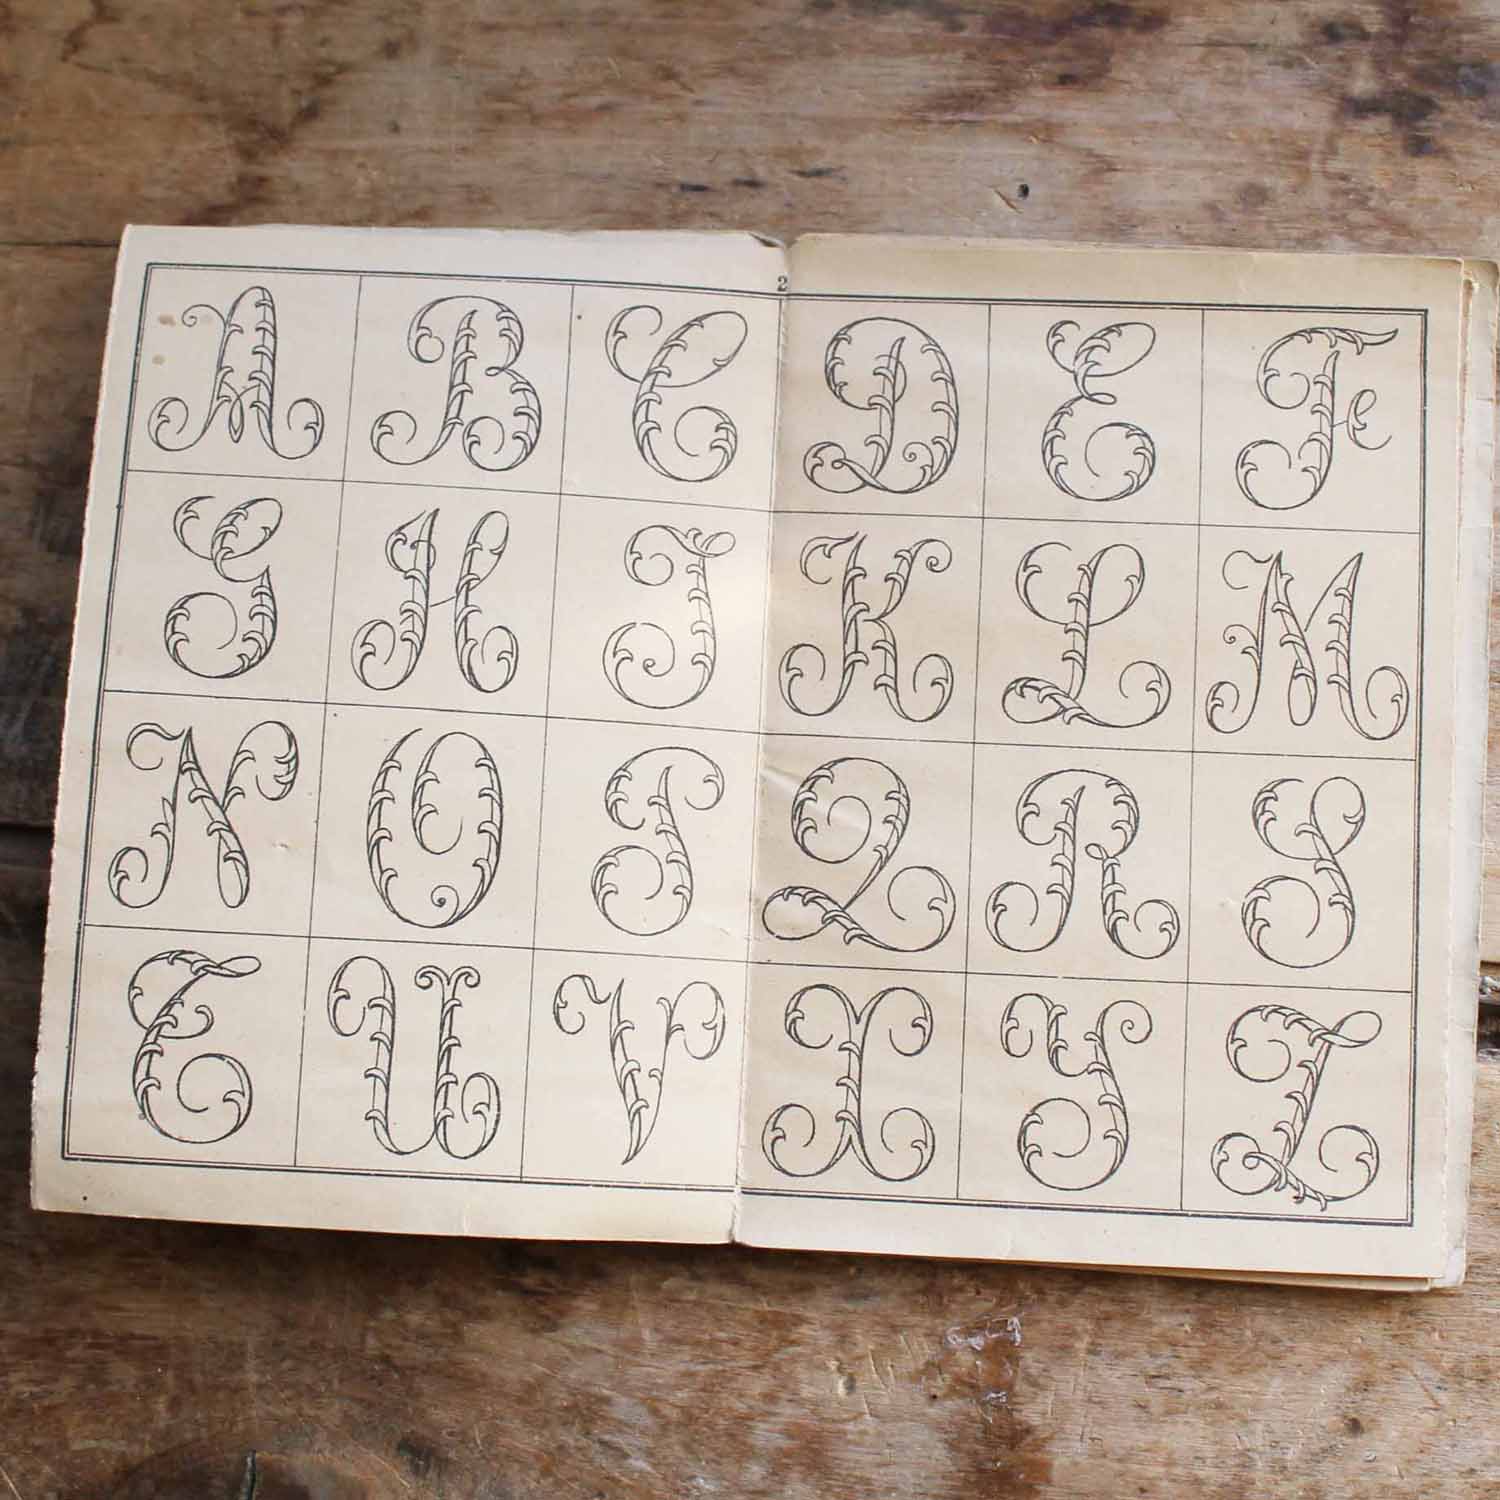 2
A B C D E F
G H J K L M
N O P Q R S
T U V X Y Z